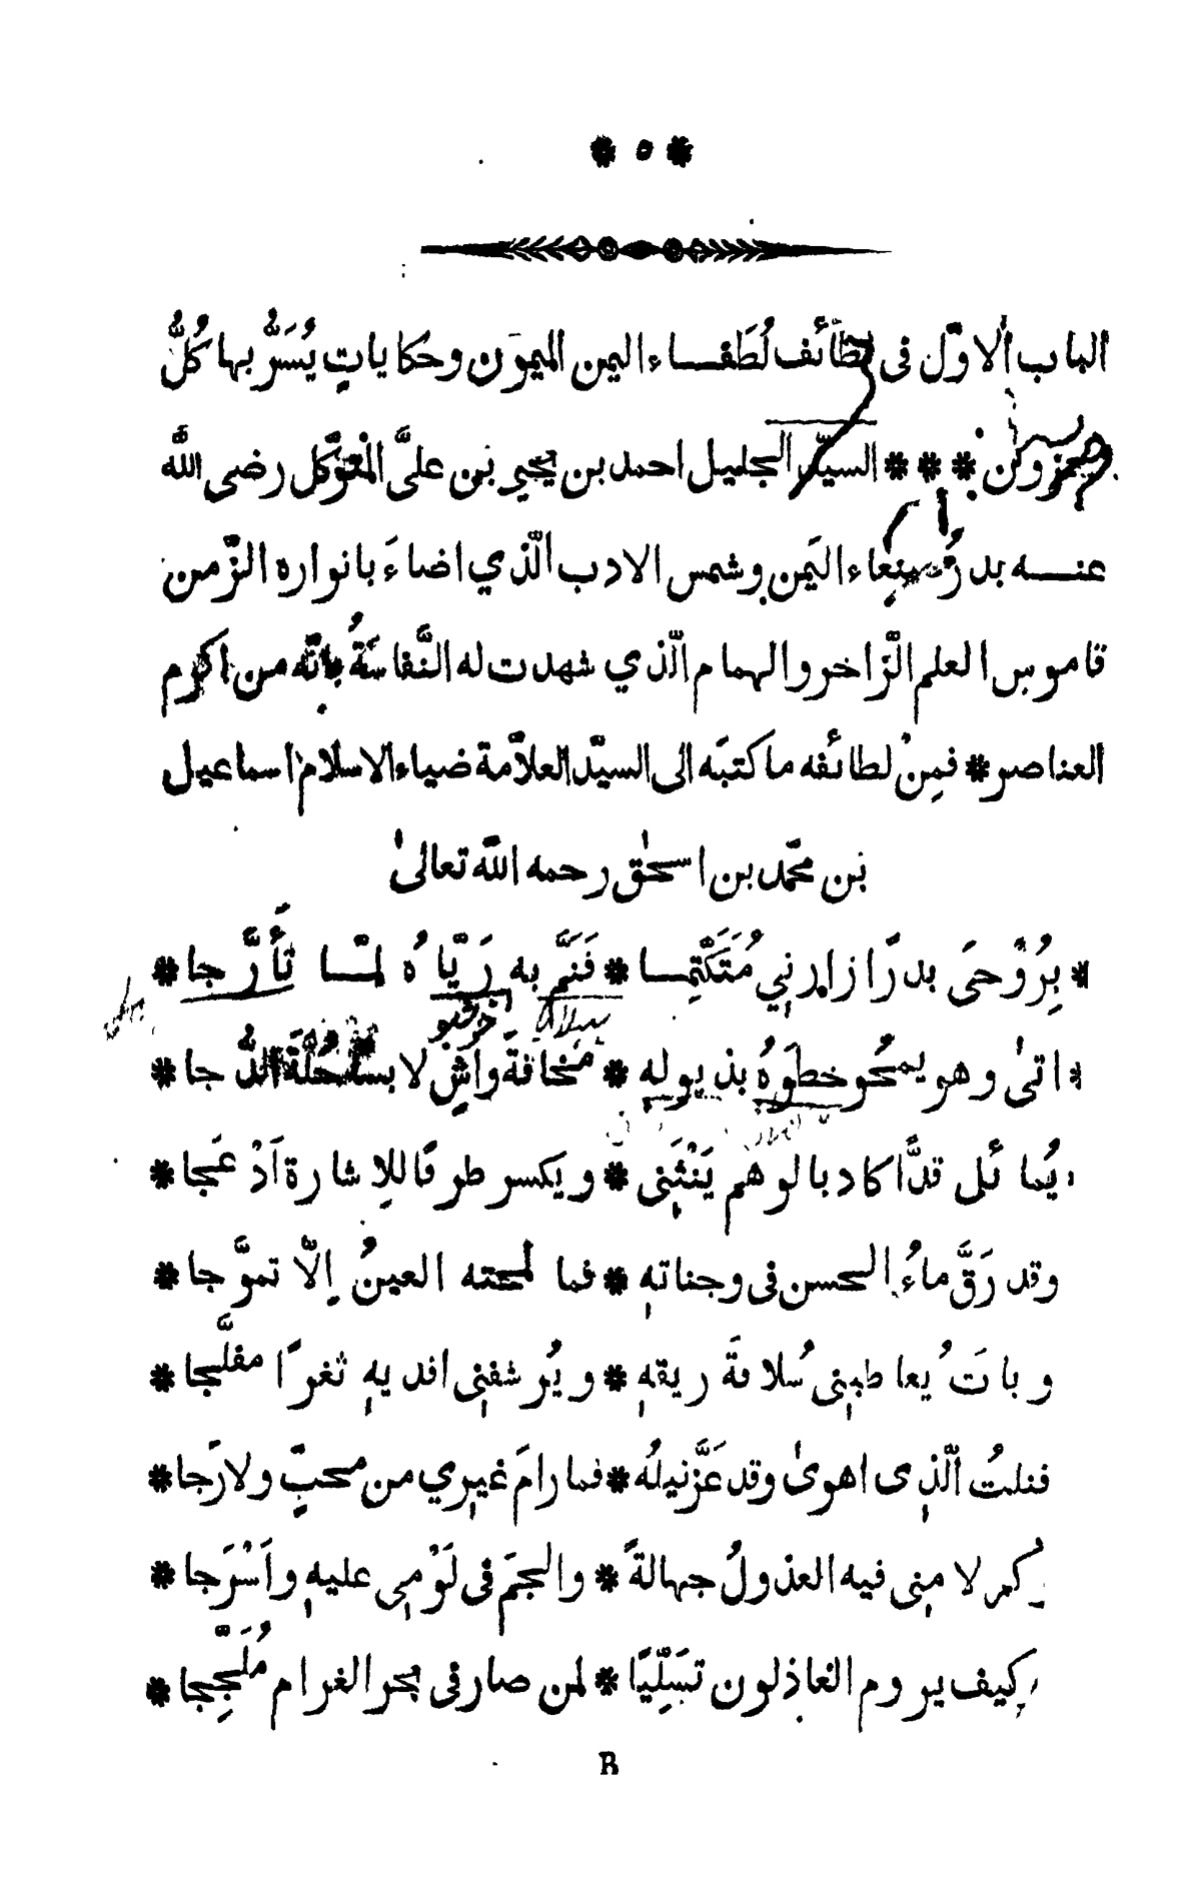 * ٥ *
الباب الاوّل فى لطَائف لُطَفاء اليمن الميمون وحكاياتٍ يُسَرُّ بها كُلُّ
محزون * * * السيّد الجليل احمد بن يحيى بن علىَّ المتوَّكل رضى اللّه
عنه بدرُ صنعاء اليَمن وشمس الادب الّذي اضاءَ بانواره الزّمن
قاموس العلم الزّاخر والهمام الّذي شهدت له النَّفاسَةُ بانّه من اكرم
العناصر * فمِنْ لطائفه ما كتبَه الى السيّد العلاّمة ضياء الاسلام اسماعيل
بن محمّد بن اسحٰق رحمه اللّه تعالىٰ
* بِرُوْحىَ بدرًا زارني مُتَكَتِّما * فَنَمَّ به رَيّاهُ لمّا تَأَرَّجا *
* اتىٰ وهو يمحُو خطوَهُ بذيوله * مخافةَ واشٍ لابسًا حُلَّةَ الدُّجا *
يُمائل قدًّا كاد بالوهم يَنْثَنى * ويكسر طرفًا للاِشارة اَدْعَجا *
وقد رَقَّ ماءُ الحسن فى وجناته * فما لمحته العينُ اِلّا تموَّجا *
وباتَ يُعاطينى سُلافةَ ريقه * ويُرشفنى افديه ثغرًا مفلَّجا *
فنلتُ الّذى اهوىٰ وقد عَزَّ نيلُه * فما رامَ غيري من محبٍّ ولا رَجا *
كم لامنى فيه العذولُ جهالةً * والجمَ فى لَوْمى عليه واَسْرَجا *
كيف يروم العاذلون تسَلِّيًا * لمن صار فى بحر الغرام مُلَجِّجا *
B